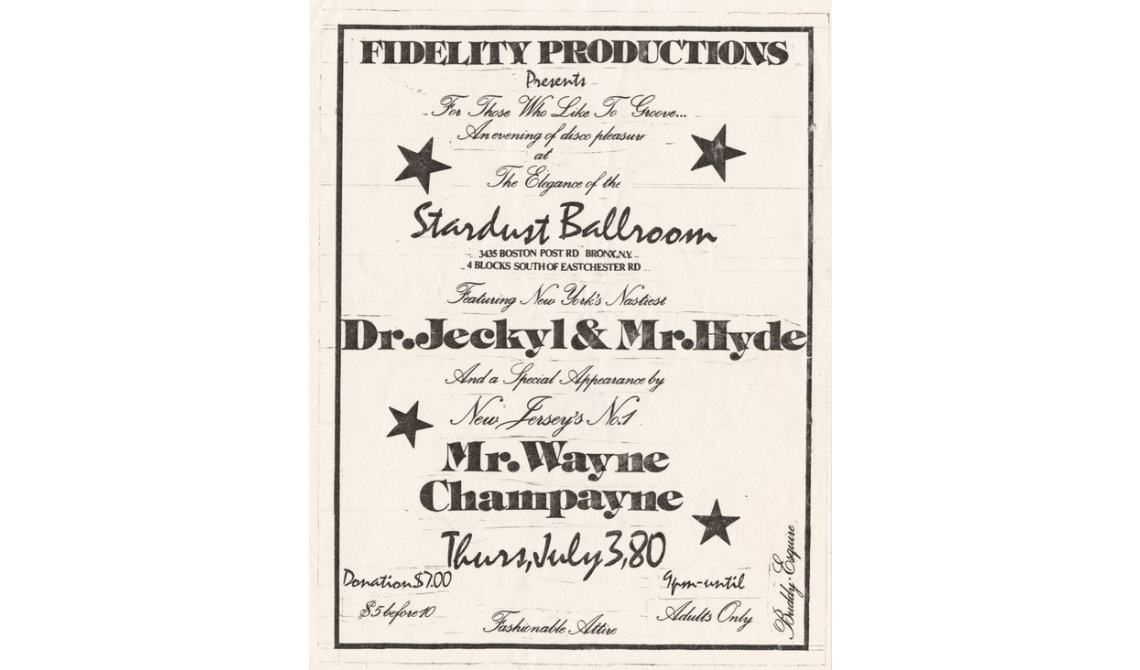 FIDELITY PRODUCTIONS
Presents
For Those Who Like To Groove...
An evening of disco pleasure
at
The Elegance of the
Stardust Ballroom
3435 BOSTON POST RD BRONX, N.Y.
4 BLOCKS SOUTH OF EASTCHESTER RD
Featuring New York's Nastiest
Dr. Jeckyl & Mr. Hyde
And a Special Appearance by
New Jersey's No.1
Mr. Wayne
Champayne
Thurs, July 3, 80
Donation $7.00
9pm-until
$5 before 10
Adults Only
Fashionable Attire
Buddy-Esquire